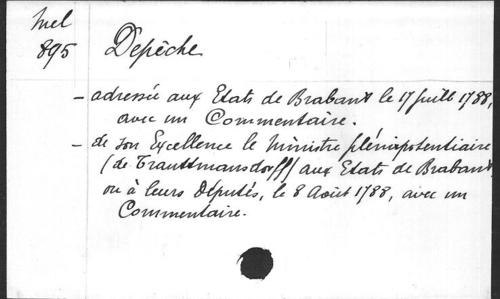 Mel
895
Depêche
- adressée aux Etats de Brabant le 17 Juill 1788,
avec un Commentaire.
- de son Excellence le Ministre plénipotentiaire
(de Trauttmansdorff) aux Etats de Brabant,
ou à leurs Députés, le 8 Août 1788, avec un
Commentaire.